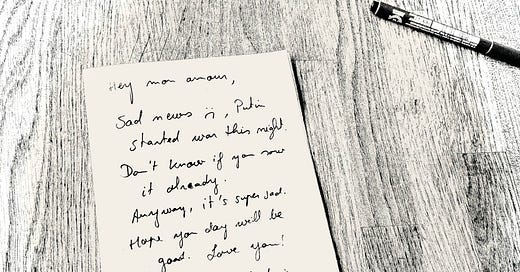 Hey mon amour,
Sad news :(, Putin
started war this night.
Don't know if you saw
it already.
Anyway, it's super sad.
Hope you day will be
good. Love you!